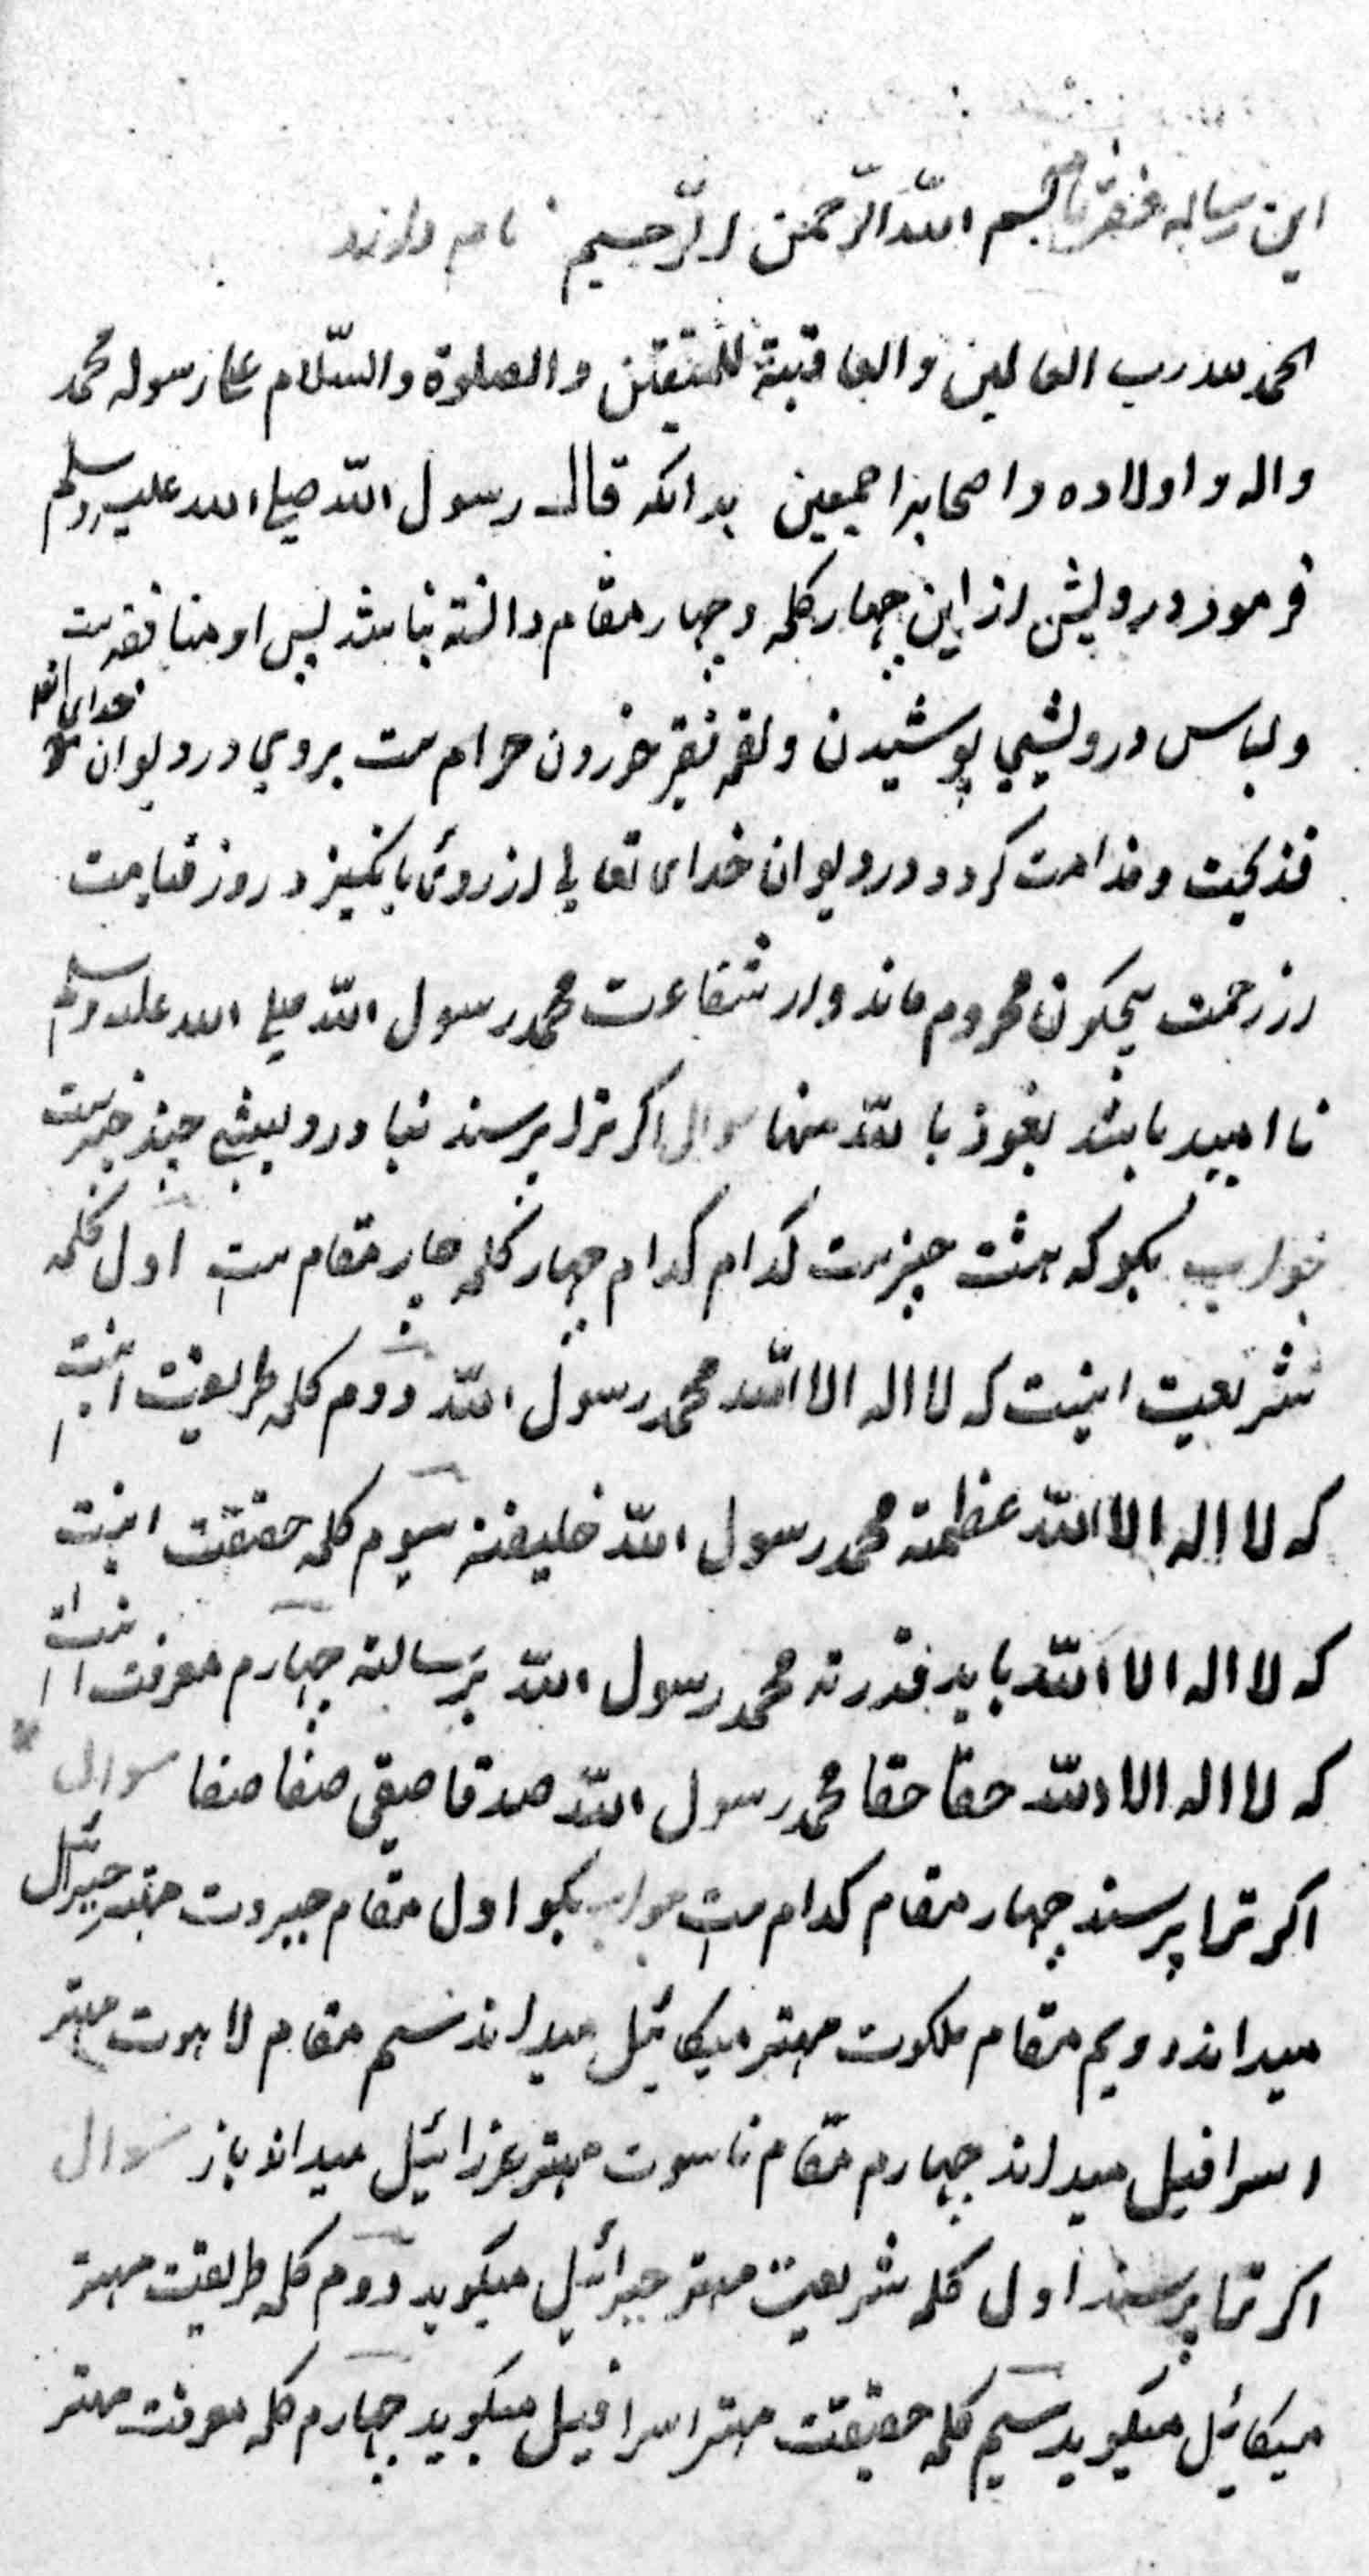 این رساله فقرنامه بسم الله الرّحمن الرّحیم نام دارند
الحمد لله رب العالمین والعاقبة للمتقین والصلوة والسّلام علی رسوله محمد
واله واولاده واصحابه اجمعین بدانکه قال رسول الله صلی الله علیه وسلم
فرمود درویش از این چهار کلمه وچهار مقام دانسته نباشد پس او منافق ست
ولباس درویشی پوشیدن ولقمه فقر خوردن حرام ست بروی در دیوان خدای
وندامت کردد در دیوان خدای تعالی از روی روز قیامت
از رحمت بیچکون محروم ماند واز شفاعت محمد رسول الله صلی الله علیه وسلم
ناامید باشد نعوذ بالله منها سوال اکر ترا پرسند بنیاد درویشی چند چیزست
جواب بکو که هشت چیزست کدام کدام چهار کلمه چار مقام ست اول کلمه
شریعت اینست که لا اله الا الله محمد رسول الله دووم کلمه طریقت اینست
که لا اله الا الله عظمته محمد رسول الله خلیفته سیوم کلمه حقیقت اینست
که لا اله الا الله باید قدرته محمد رسول الله برسالته چهارم معرفت اینست
که لا اله الا الله حقا حقا محمد رسول الله صدقا صفا صفا سوال
اکر ترا پرسند چهار مقام کدام ست جواب بکو اول مقام جبروت مهتر جبرائیل
میداند دویم مقام ملکوت مهتر میکائیل میداند سیم مقام لاهوت مهتر
اسرافیل میداند چهارم مقام ناسوت مهتر عزرائیل میداند باز سوال
اکر ترا پرسند اول کلمه شریعت مهتر جبرائیل میکوید دووم کلمه طریقت مهتر
میکائیل میکوید سیم کلمه حقیقت مهتر اسرافیل میکوید چهارم کلمه معرفت مهتر